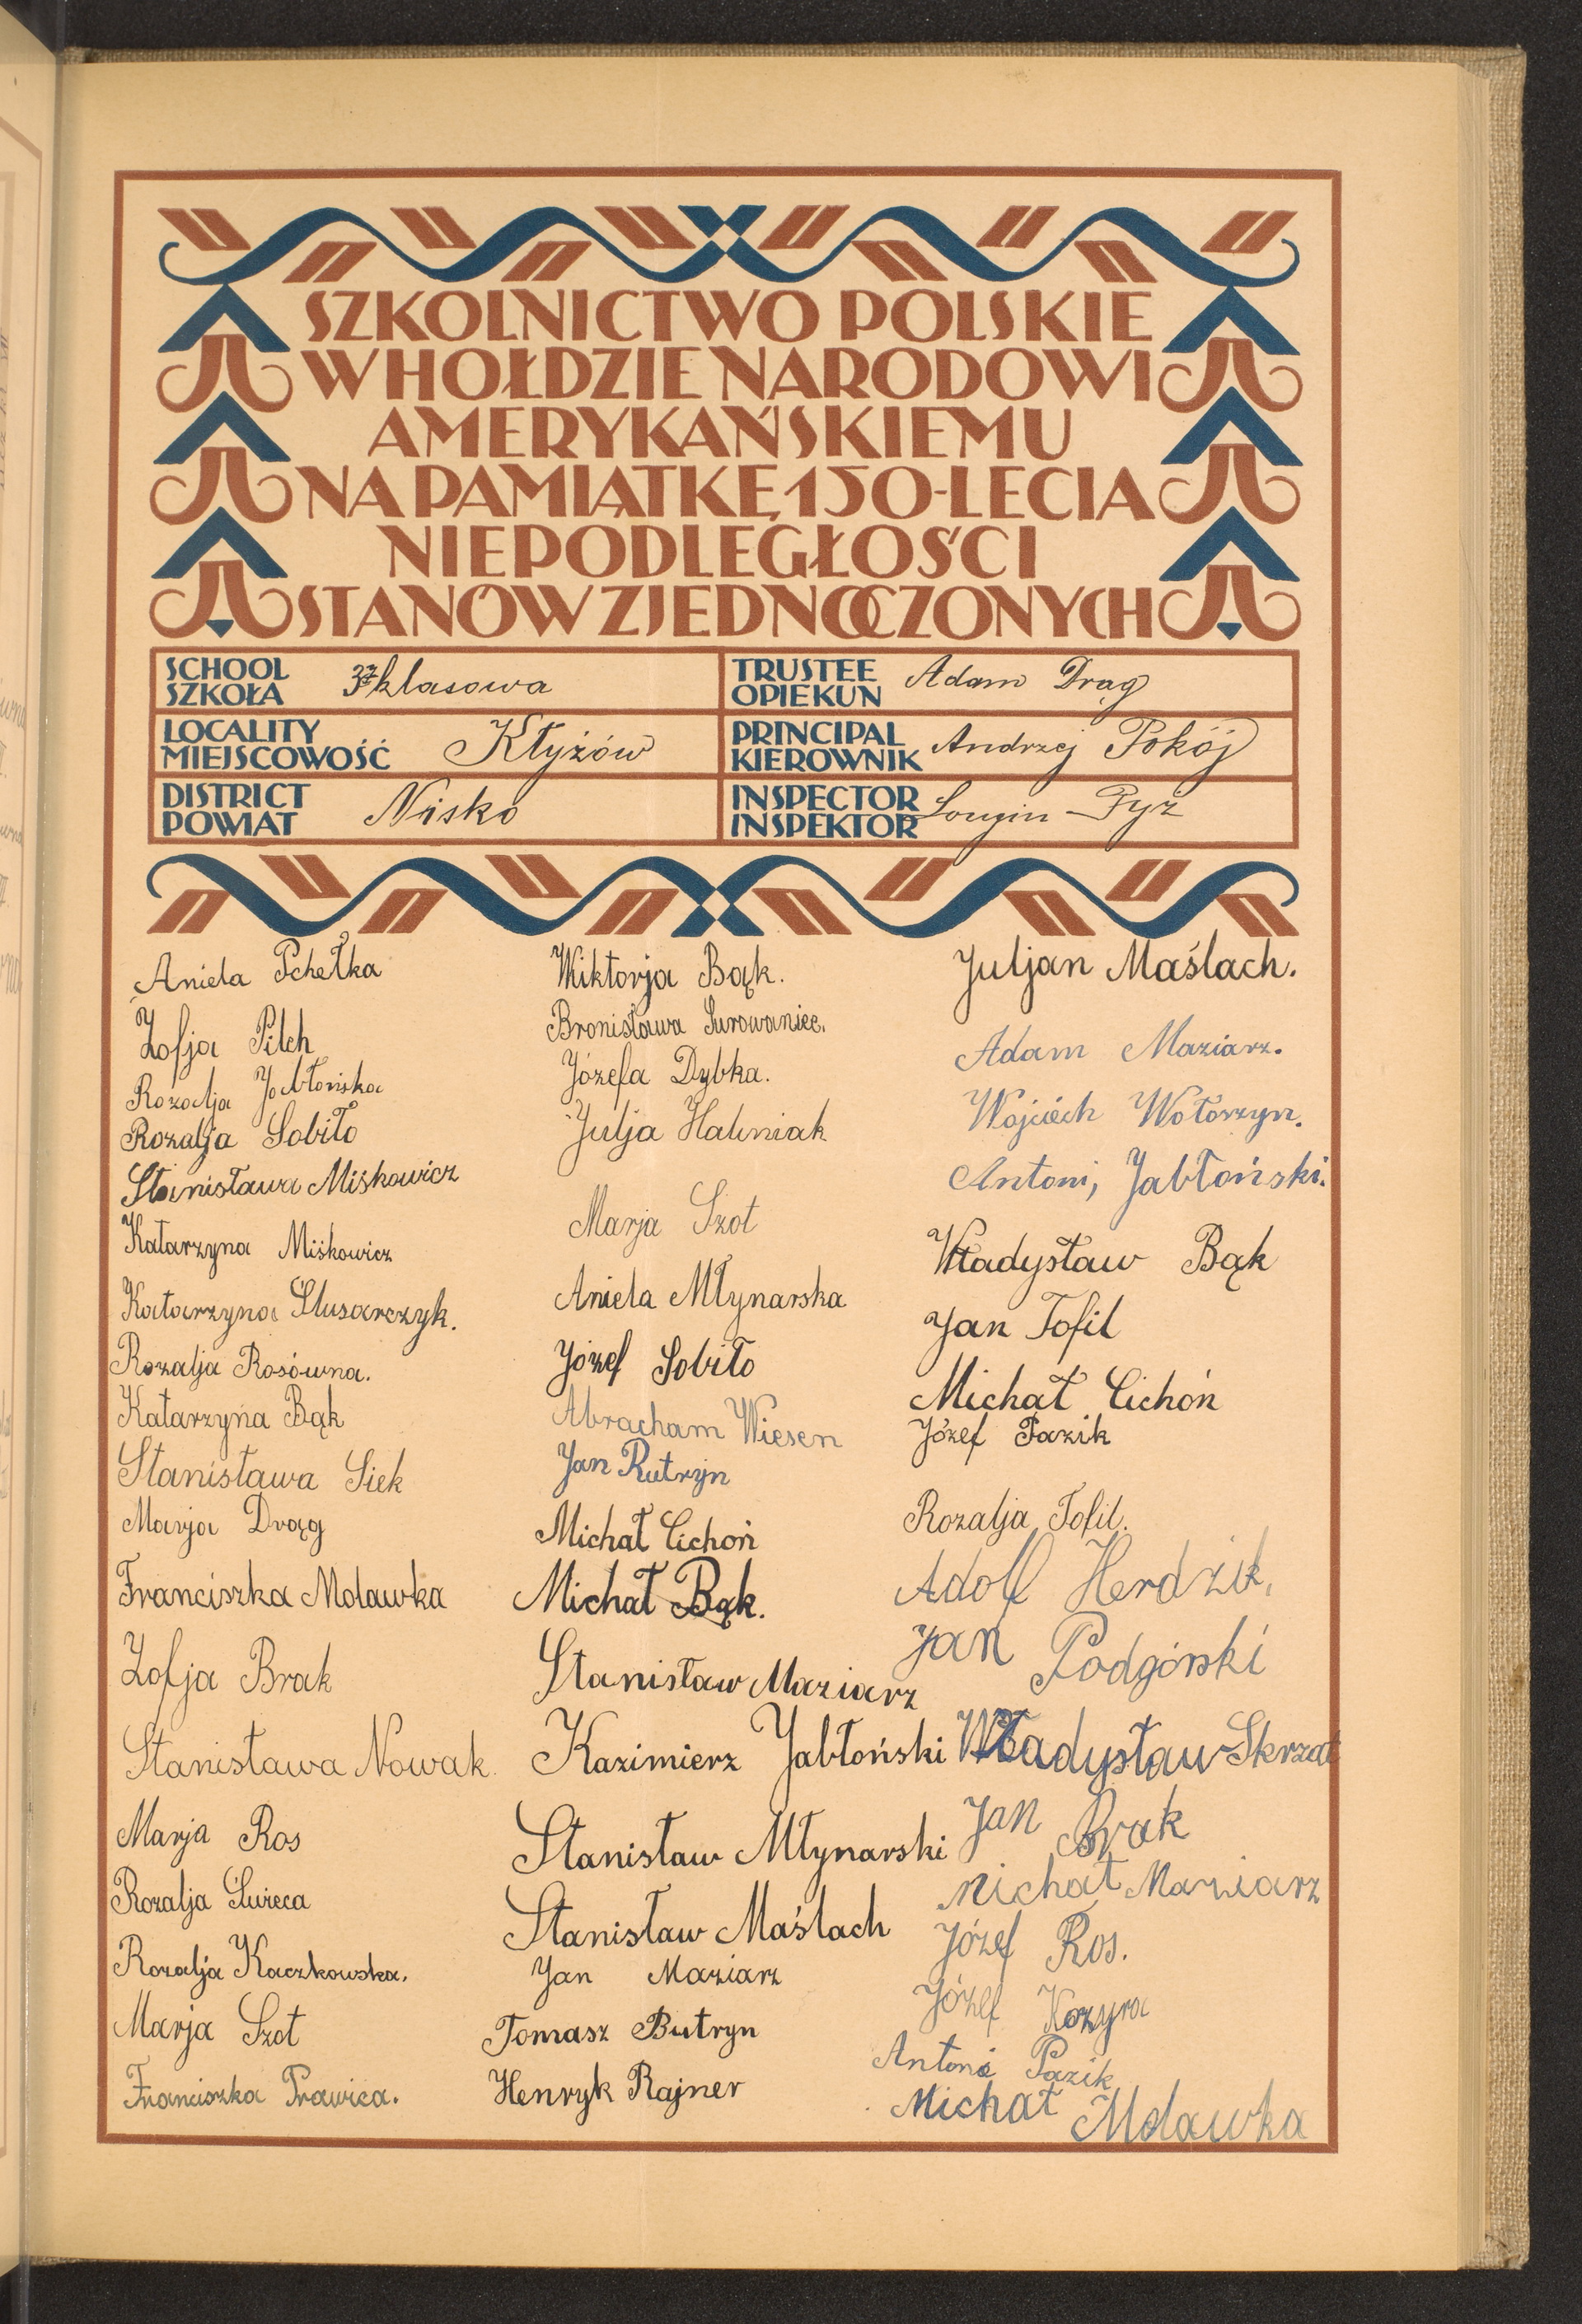 SZKOLNICTWO POLSKIE
W HOŁDZIE NARODOWI
AMERYKAŃSKIEMU
NA PAMIĄTKĘ 150-LECIA
NIEPODLEGŁOŚCI
STANÓW ZJEDNOCZONYCH
SCHOOL
SZKOŁA
klasowa
TRUSTEE
OPIEKUN
Adam Drąg
LOCALITY
MIEJSCOWOŚĆ
Kłyżów
PRINCIPAL
KIEROWNIK
Andrzej Pokój
DISTRICT
POWIAT
Nisko
INSPECTOR
INSPEKTOR
Longin Pyż
Aniela Pchełka
Zofja Pilch
Rozalja Jabłońska
Rozalja Sobiło
Stanisława Miśkowicz
Katarzyna Miśkowicz
Katarzyna Ślusarczyk.
Rozalja Rosówna.
Katarzyna Bąk
Stanisława Siek
Marja Drąg
Franciszka Moławka
Zofja Brak
Stanisława Nowak.
Marja Ros
Rozalja
Rozalja Kaczkowska.
Marja Szot
Franciszka Prawica.
Wiktorja Bąk.
Bronisława Surowaniec.
Józefa Dybka.
Julja Haliniak
Marja Szot
Aniela Młynarska
Józef Sobiło
Abracham Wiesen
Jan Rutryn
Michał Cichoń
Michał Bąk.
Stanisław Maziarz
Kazimierz Jabłoński
Stanisław Młynarski
Stanisław Maślach
Jan Maziarz
Tomasz Butryn
Henryk Rajner
Juljan Maślach.
Adam Maziarz.
Wojciech Wołoszyn.
Antoni, Jabłoński.
Władysław Bąk
Jan Tofil
Michał Cichoń
Józef Pazik
Rozalja Tofil.
Adolf Herdzik,
Jan Podgórski
Władysław Skrzat
Jan Brak
Michał Maziarz
Józef Ros.
Józef Kozyra
Antoni Pazik
Michał Moławka